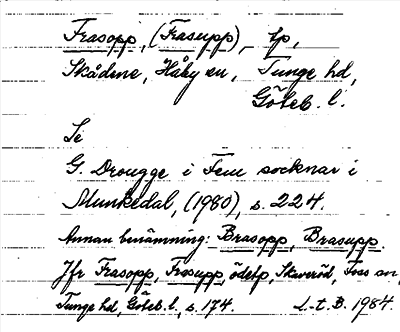 Frasopp, (Frasupp), tp,
Skådene, Håby sn, Tunge hd,
Göteb. l.
Se
G. Drougge i Fem socknar i
Munkedal, (1980), s. 224.
Annan benämning: Brasopp, Brasupp.
Jfr Frasopp, Frosupp, ödetp, Skaveröd, Foss sn,
Tunge hd, Göteb. l., s. 174. L.t.B. 1984.